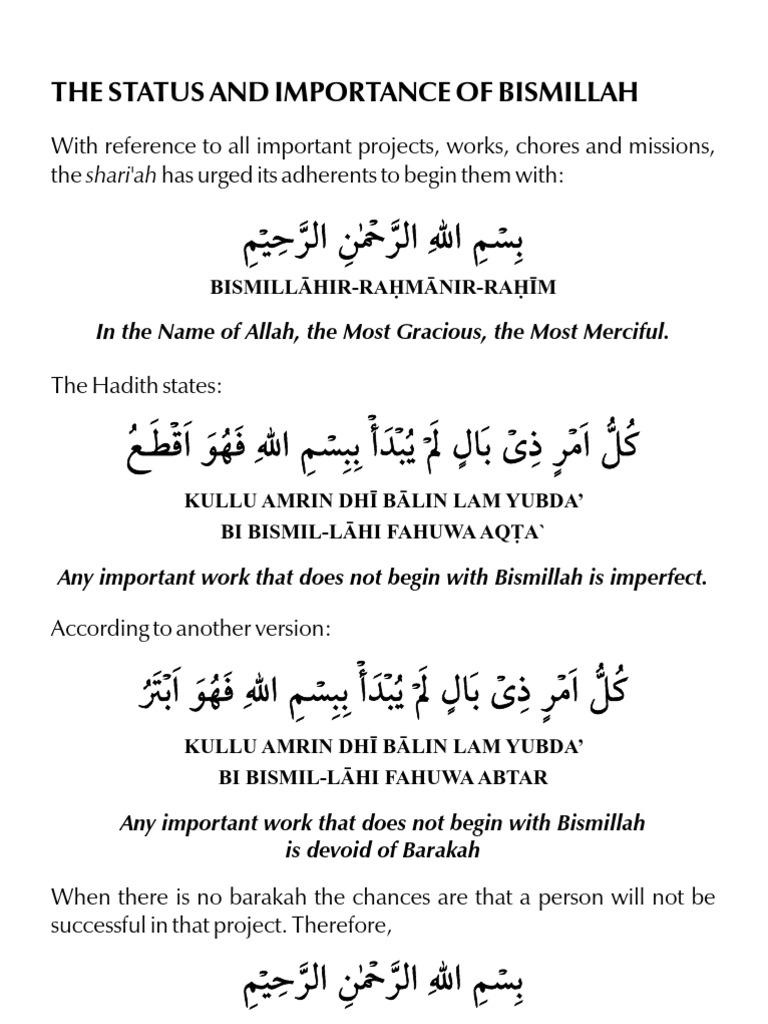 THE STATUS AND IMPORTANCE OF BISMILLAH
With reference to all important projects, works, chores and missions,
the shari'ah has urged its adherents to begin them with:
بِسْمِ اللهِ الرَّحْمٰنِ الرَّحِيْمِ
BISMILLĀHIR-RAḤMĀNIR-RAḤĪM
In the Name of Allah, the Most Gracious, the Most Merciful.
The Hadith states:
كُلُّ اَمْرٍ ذِىْ بَالٍ لَمْ يُبْدَأْ بِبِسْمِ اللهِ فَهُوَ اَقْطَعُ
KULLU AMRIN DHĪ BĀLIN LAM YUBDA’
BI BISMIL-LĀHI FAHUWA AQṬA`
Any important work that does not begin with Bismillah is imperfect.
According to another version:
كُلُّ اَمْرٍ ذِىْ بَالٍ لَمْ يُبْدَأْ بِبِسْمِ اللهِ فَهُوَ اَبْتَرُ
KULLU AMRIN DHĪ BĀLIN LAM YUBDA’
BI BISMIL-LĀHI FAHUWA ABTAR
Any important work that does not begin with Bismillah
is devoid of Barakah
When there is no barakah the chances are that a person will not be
successful in that project. Therefore,
بِسْمِ اللهِ الرَّحْمٰنِ الرَّحِيْمِ